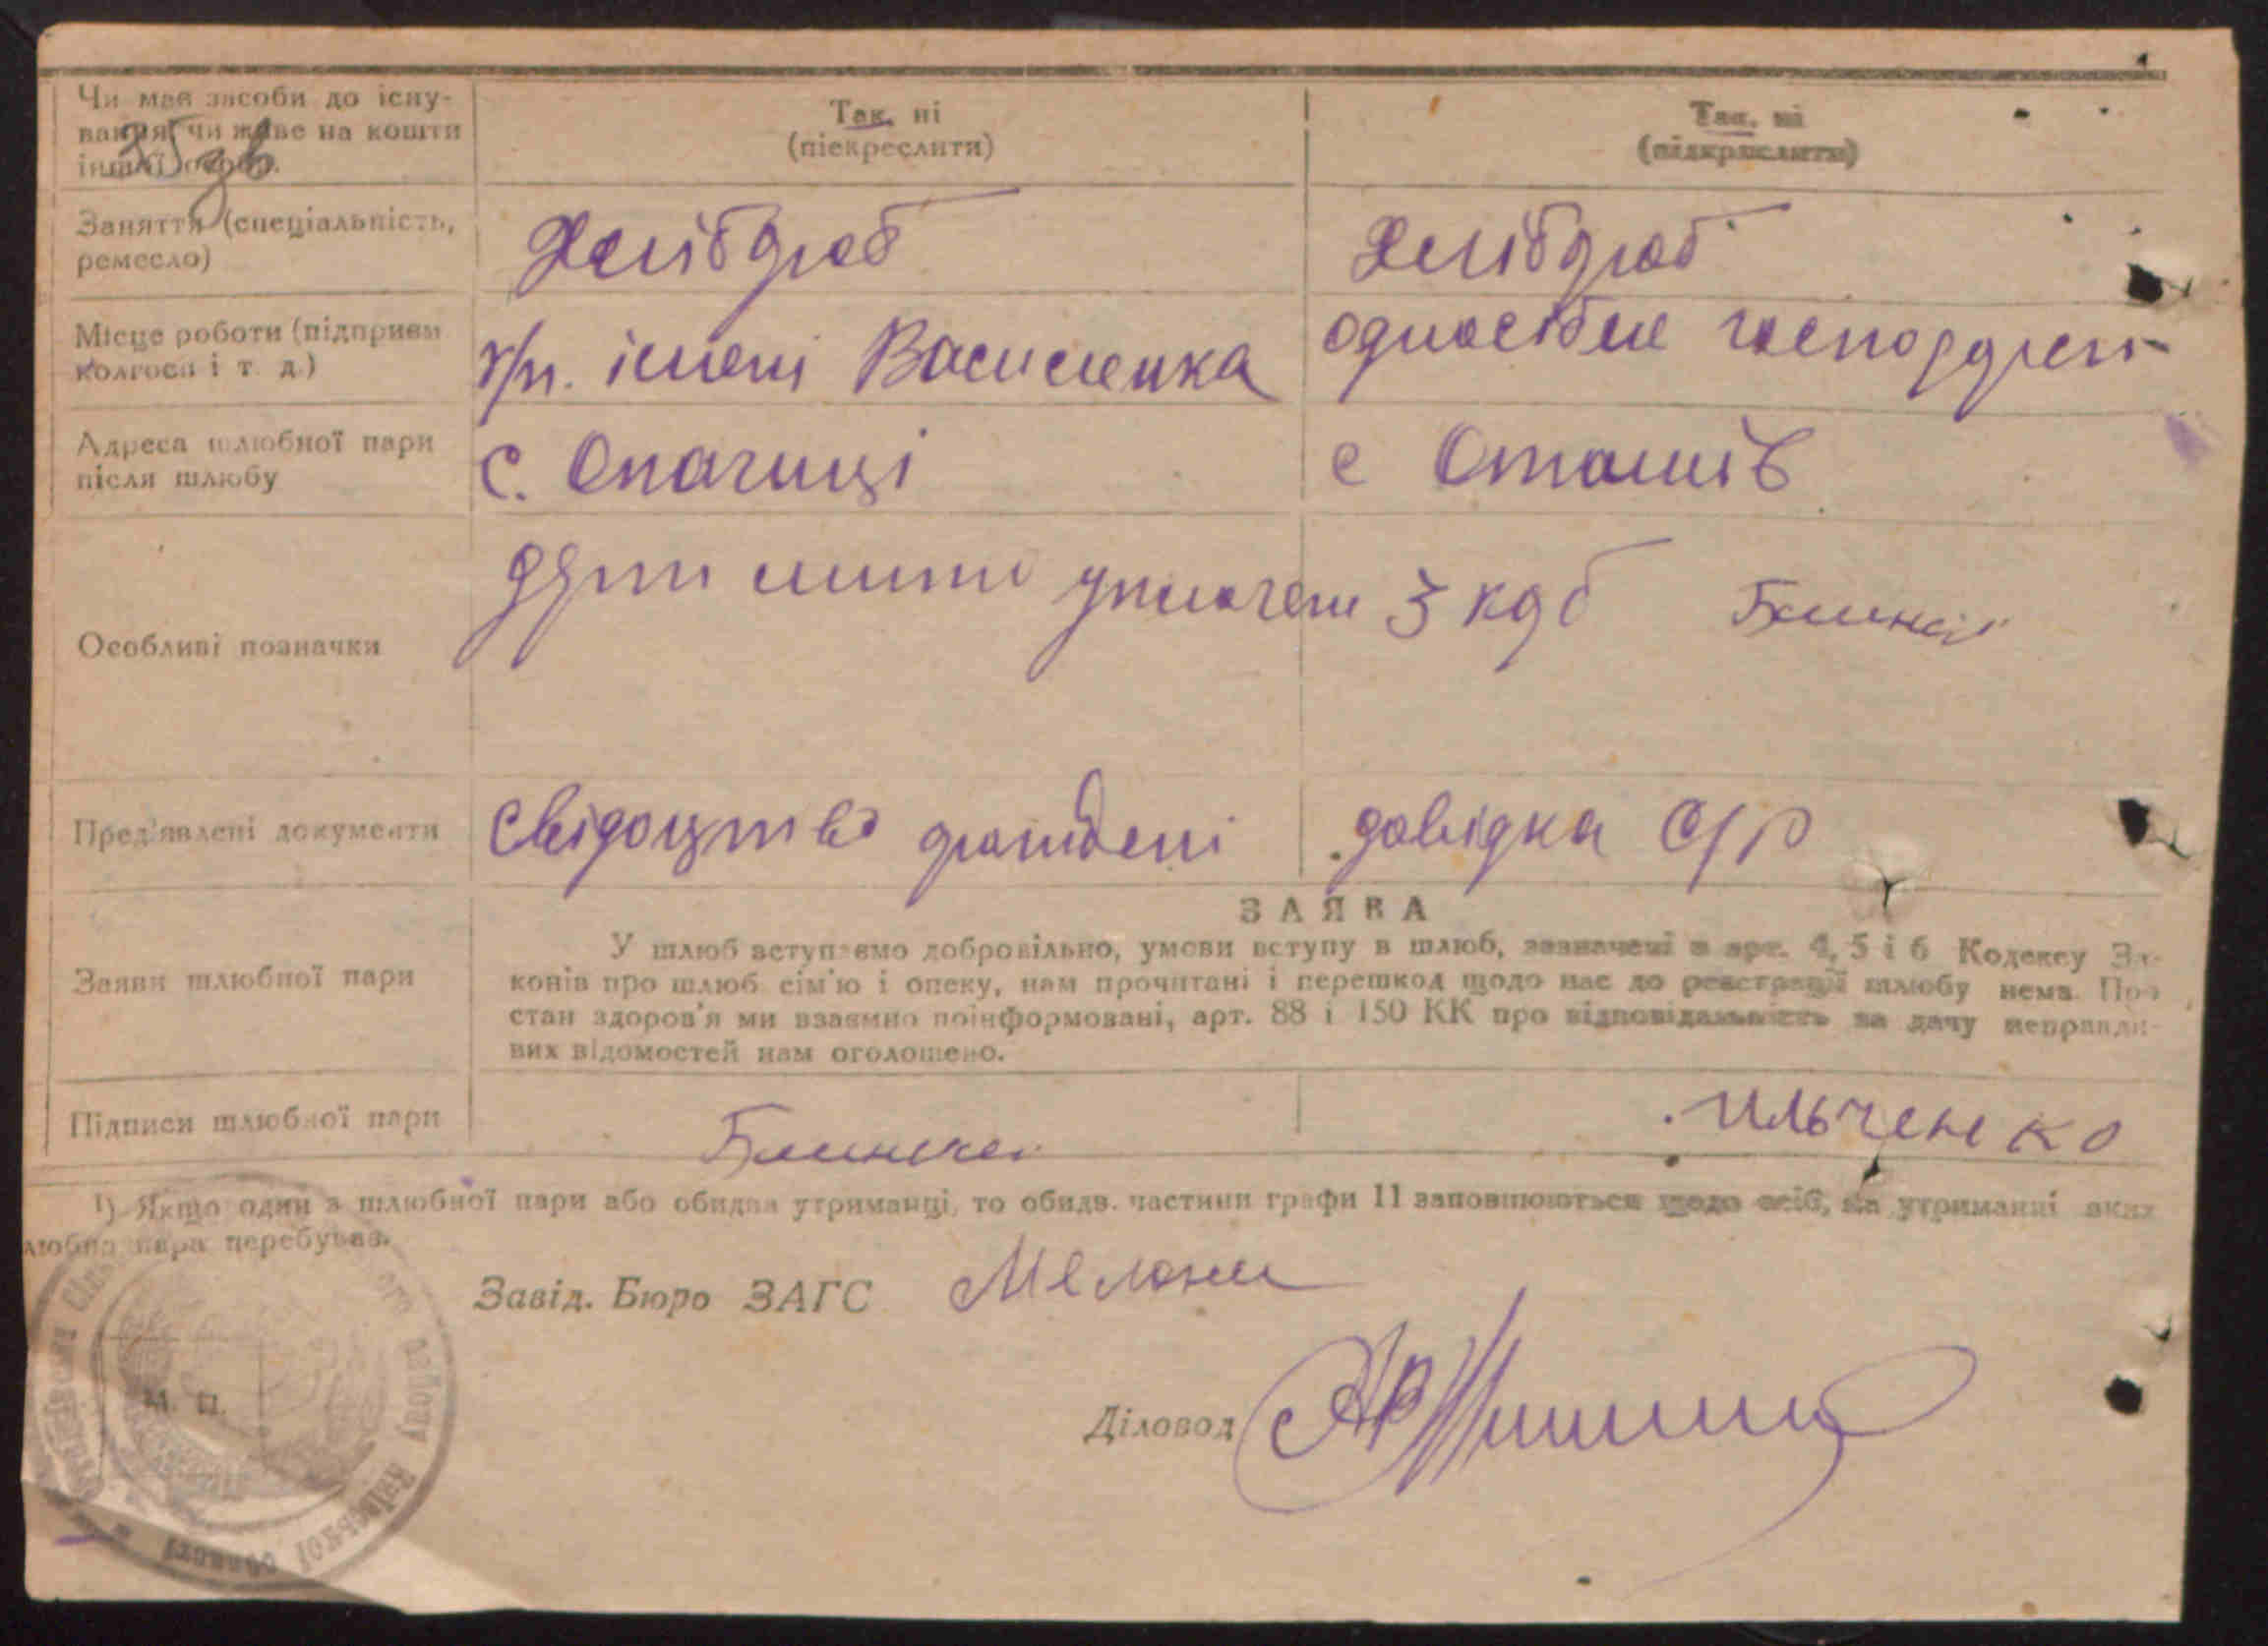 Чи має засоби до існу-
вання, чи живе на кошти
іншої особи.
Так, ні
(піекреслити)
Так, ні
(підкреслити)
Заняття (спеціальність,
ремесло)
Хлібороб
Хлібороб
Місце роботи (підприєм
колгосп і т. д.)
імені Василенка
одноосібне
Адреса шлюбної пари
після шлюбу
с. Опачиці
с Оташів
Особливі позначки
уплочені 3 крб
Пред'явлені документи
Свідоцтво
довідка С/Р
ЗАЯВА
Заяви шлюбної пари
У шлюб вступаємо добровільно, умови вступу в шлюб, зазначені в арт. 4, 5 і 6 Кодексу За-
конів про шлюб сім'ю і опеку, нам прочитані і перешкод щодо нас до реєстрації шлюбу нема. Про
стан здоров'я ми взаємно поінформовані, арт. 88 і 150 КК про відповідальність за дачу неправди-
вих відомостей нам оголошено.
Підписи шлюбної пари
ильченко
¹) Якщо один з шлюбної пари або обидва утриманці, то обидв. частини графи 11 заповнюються щодо осіб, на утриманні яких
шлюбна пара перебуває.
Завід. Бюро ЗАГС
Діловод
М. П.
району Київської області